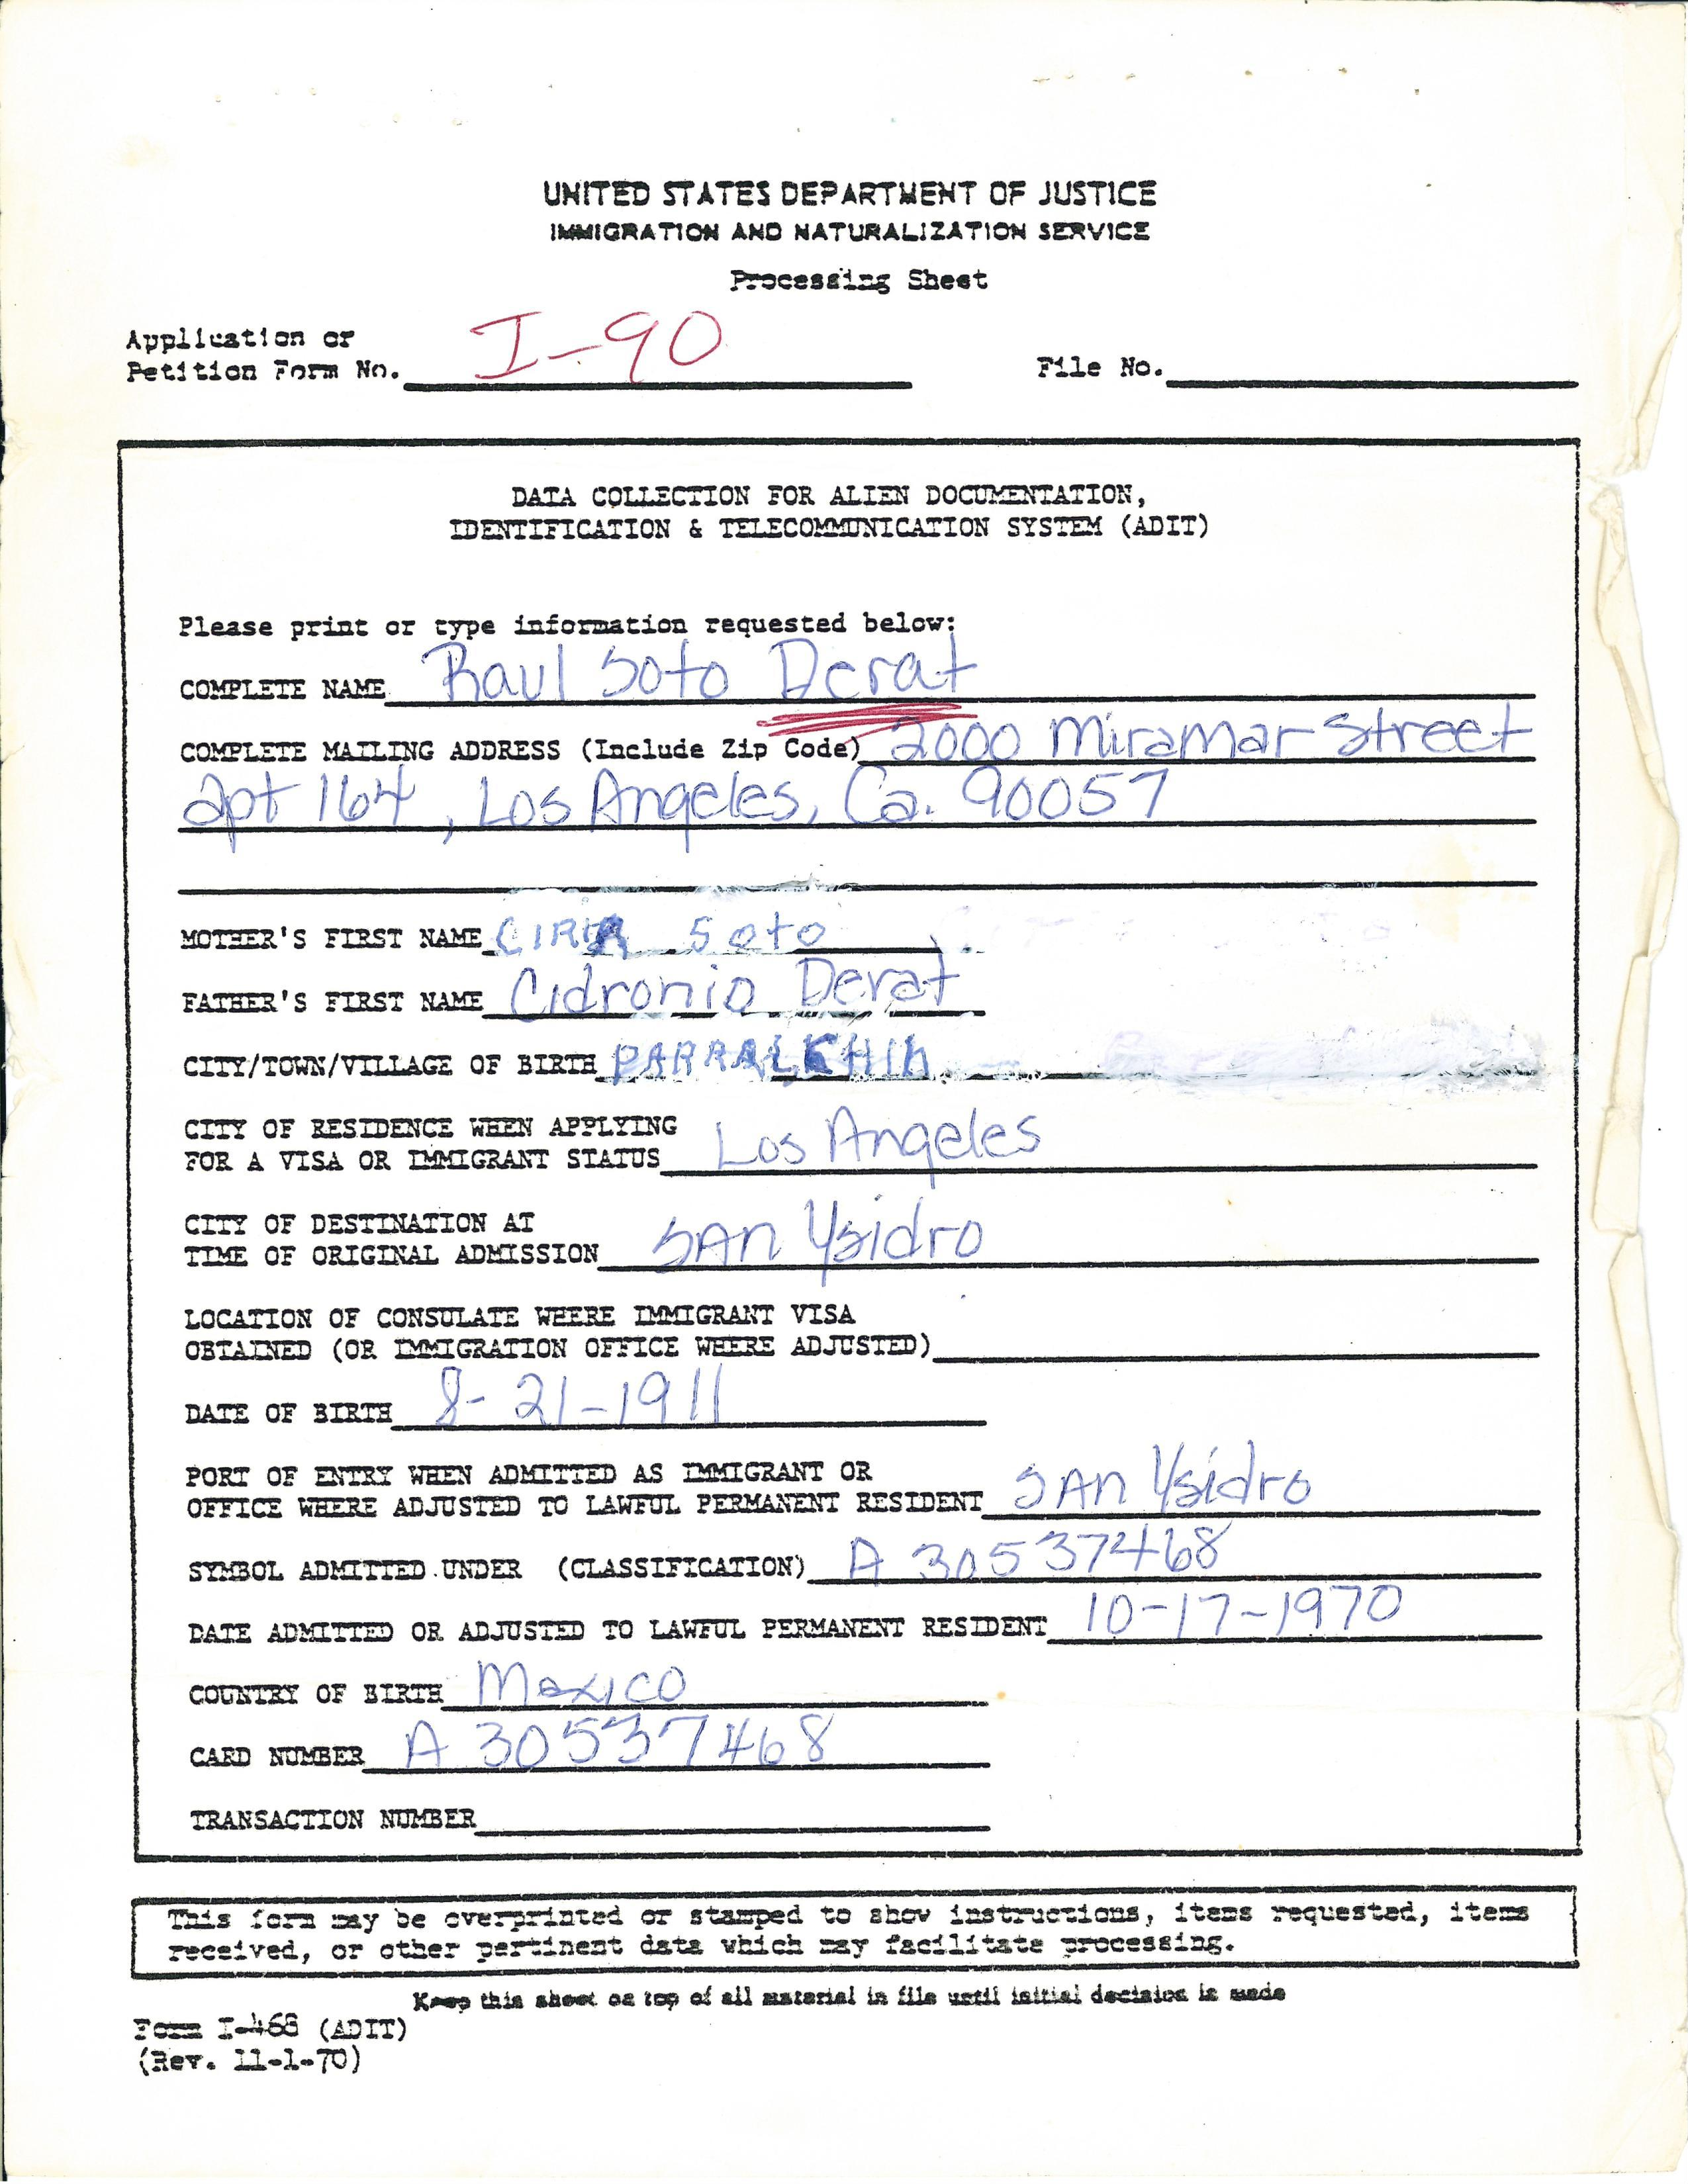 UNITED STATES DEPARTMENT OF JUSTICE
IMMIGRATION AND NATURALIZATION SERVICE
Processing Sheet
Application or
Petition Form No. I-90 File No.
DATA COLLECTION FOR ALIEN DOCUMENTATION,
IDENTIFICATION & TELECOMMUNICATION SYSTEM (ADIT)
Please print or type information requested below:
COMPLETE NAME Raul Soto Derat
COMPLETE MAILING ADDRESS (Include Zip Code) 2000 Miramar Street
apt 164, Los Angeles, Ca. 90057
MOTHER'S FIRST NAME CIRIA Soto
FATHER'S FIRST NAME Cidronio Derat
CITY/TOWN/VILLAGE OF BIRTH PARRAL
CITY OF RESIDENCE WHEN APPLYING
FOR A VISA OR IMMIGRANT STATUS Los Angeles
CITY OF DESTINATION AT
TIME OF ORIGINAL ADMISSION SAn Ysidro
LOCATION OF CONSULATE WHERE IMMIGRANT VISA
OBTAINED (OR IMMIGRATION OFFICE WHERE ADJUSTED)
DATE OF BIRTH 8-21-1911
PORT OF ENTRY WHEN ADMITTED AS IMMIGRANT OR
OFFICE WHERE ADJUSTED TO LAWFUL PERMANENT RESIDENT SAn Ysidro
SYMBOL ADMITTED UNDER (CLASSIFICATION) A 30537468
DATE ADMITTED OR ADJUSTED TO LAWFUL PERMANENT RESIDENT 10-17-1970
COUNTRY OF BIRTH Mexico
CARD NUMBER A 30537468
TRANSACTION NUMBER
This form may be overprinted or stamped to show instructions, items requested, items
received, or other pertinent data which may facilitate processing.
Keep this sheet on top of all material in file until initial decision is made
Form I-468 (ADIT)
(Rev. 11-1-70)